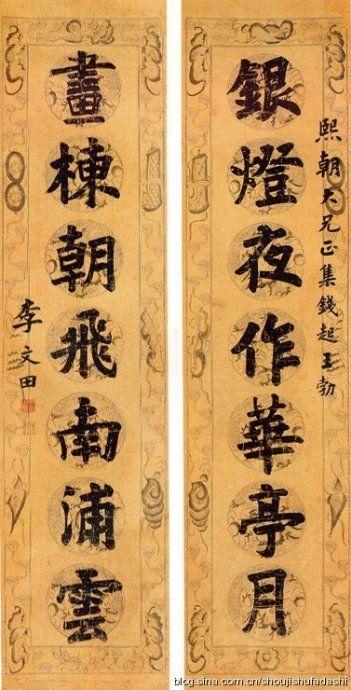 熙朝大兄正集錢起王勃
銀燈夜作華亭月
畫棟朝飛南浦雲
李文田
blog.sina.com.cn/shoujishufadashi